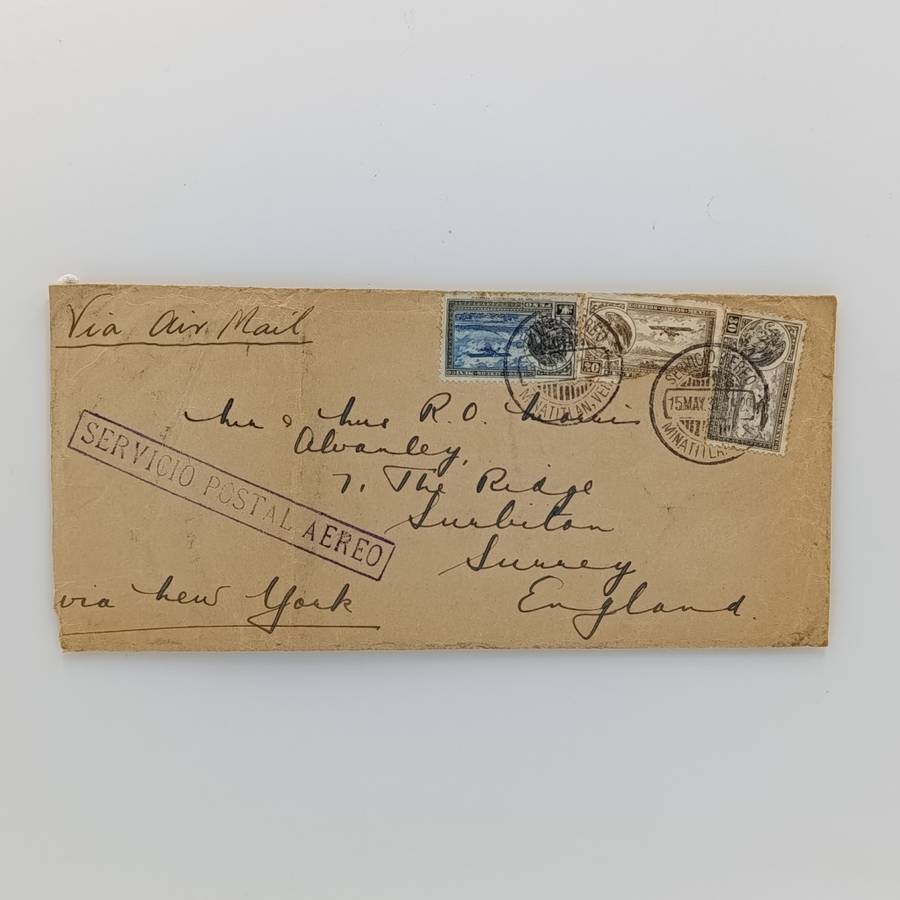 Via Air Mail
Mr & Mrs R.O.
Alvanley,
7, The Ridge
Surbiton
Surrey
England.
via New York
SERVICIO POSTAL AEREO
SERVICIO AEREO
MINATITLAN, VER.
SERVICIO AEREO
15 MAY. 3
MINATITLAN
CORREO AEREO MEXICO
20
30